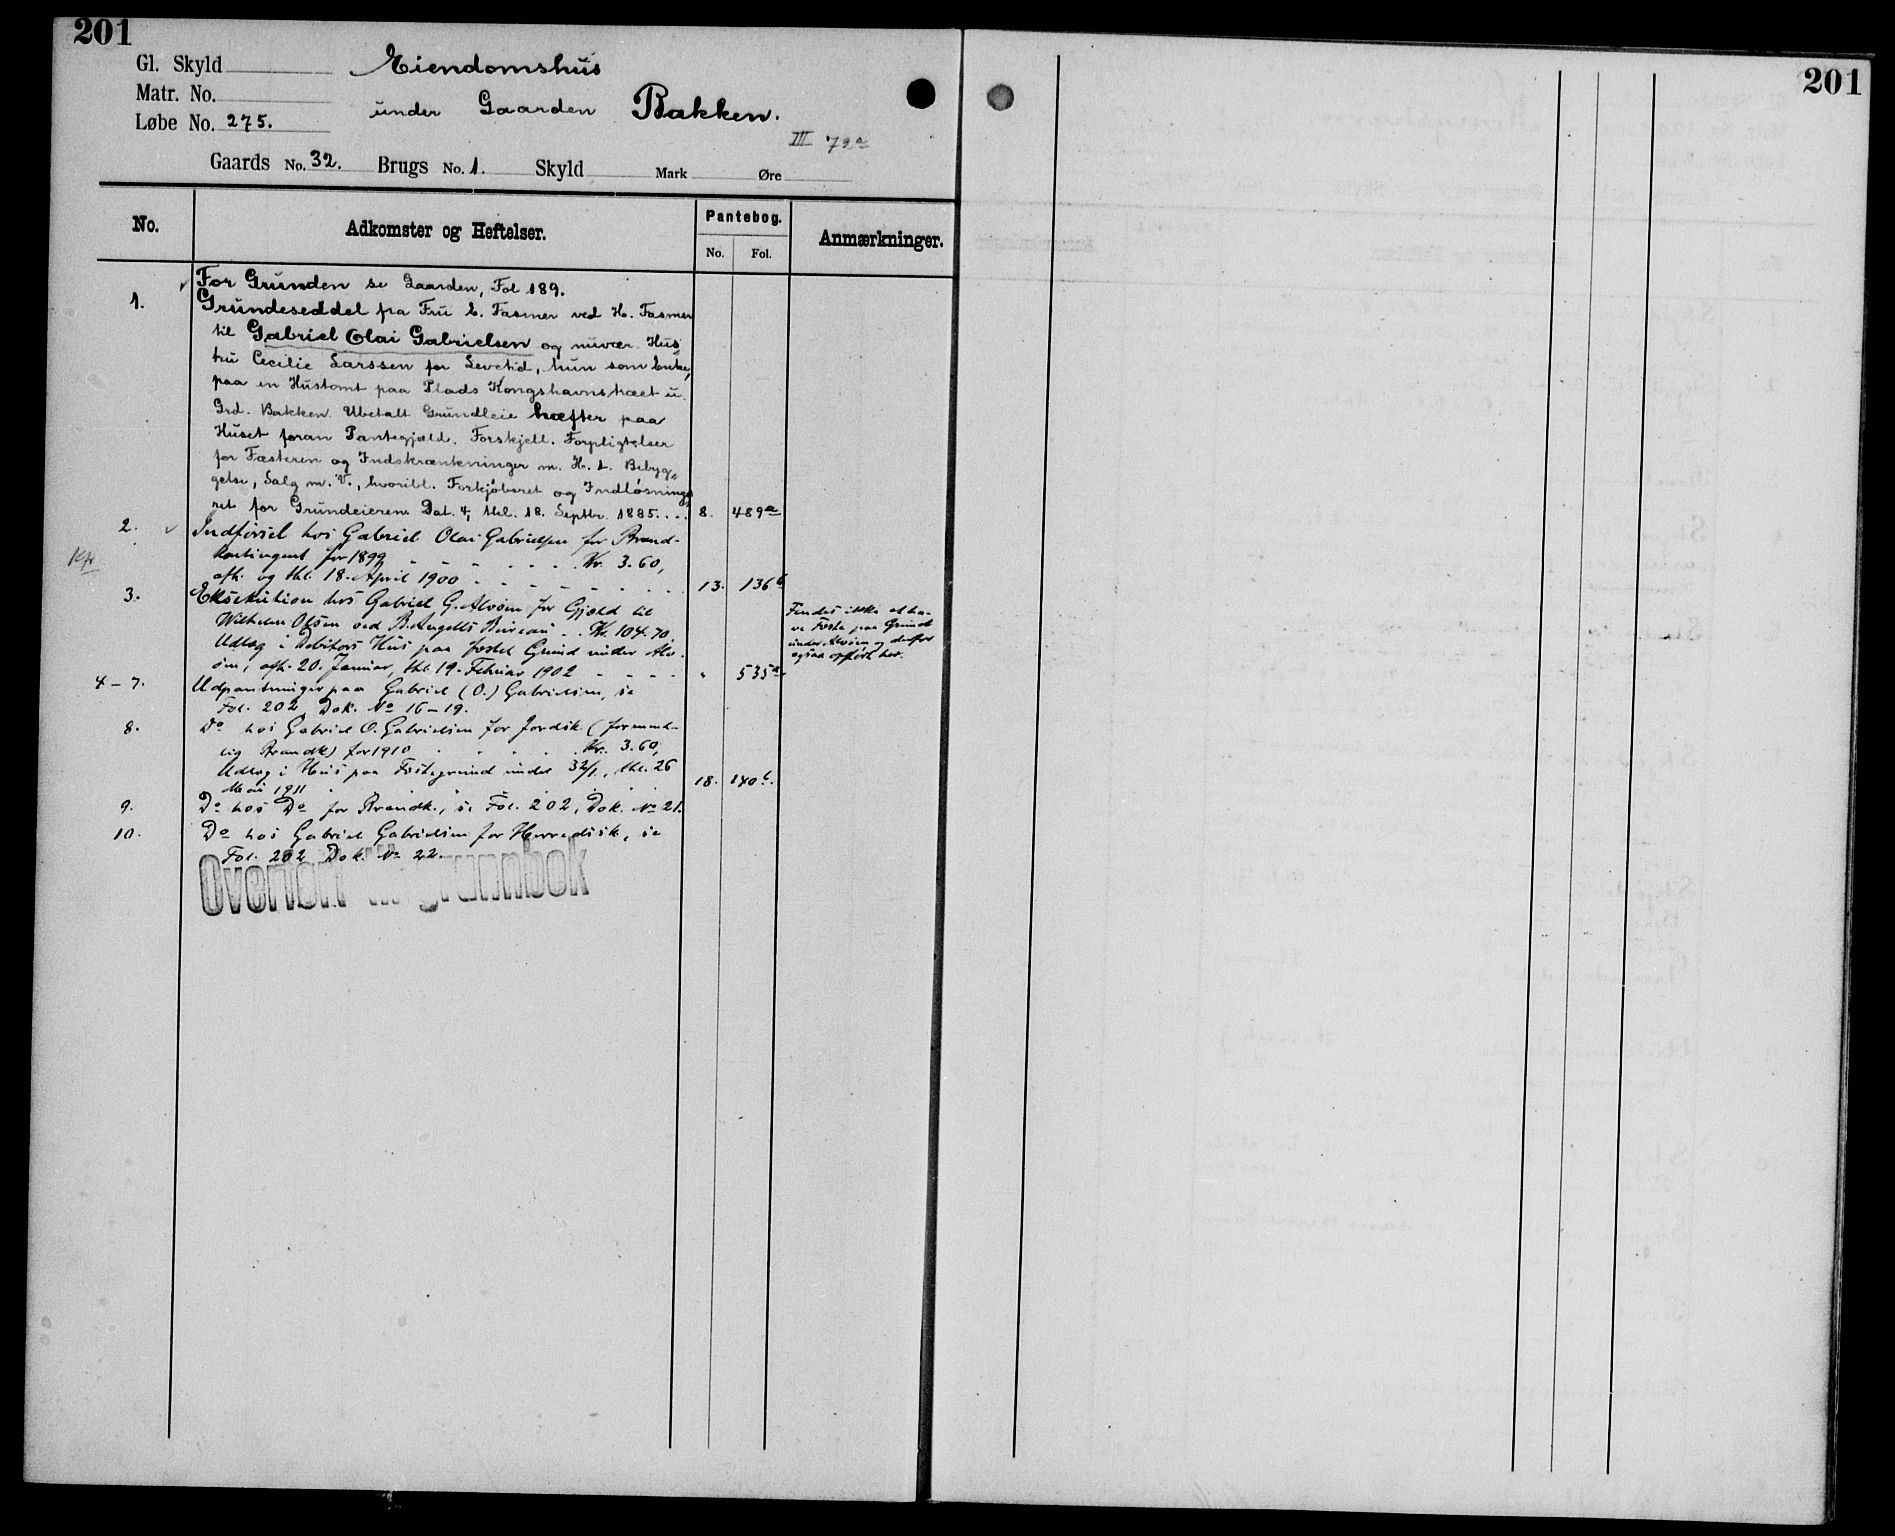 201
Gl. Skyld Eiendomshus
Matr. No. under Gaarden Bakken.
Løbe No. 275.
III 72a
Gaards No. 32. Brugs No. 1. Skyld Mark Øre
No. Adkomster og Heftelser. Pantebog. Anmærkninger.
No. Fol.
For Grunden se Gaarden, Fol 189.
1. Grundeseddel fra Fru E. Fasmer ved H. Fasmer
til Gabriel Olai Gabrielsen og nuvær. Hus„
tru Cecilie Larssen for Levetid, hun som Enke,
paa en Hustomt paa Plads Kongshavnstræet u.
Grd. Bakken. Ubetalt Grundleie hæfter paa
Huset foran Pantegjæld. Forskjell. Forpligtelser
for Fæsteren og Indskrænkninger m. H. t. Bebyg„
gelse, Salg m. V., hvoribl. Forkjøbsret og Indløsnings„
ret for Grundeieren. Dat. 4, thl. 18. Septbr. 1885. . . . 8. 489a
2. Indførsel hos Gabriel Olai Gabrielsen for Brand-
Kfr kontingent for 1899 - - - . . . Kr. 3.60,
afh. og thl. 18. April 1900 - - - - - - - . . 13. 136b
3. Eksekution hos Gabriel G. Alvøen for Gjæld til
Wilhelm Olsen ved B. Angells Bureau . . Kr. 104.70.
Udlæg i Debitors Hus paa fæstet Grund under Alv-
øen, afh. 20. Januar, thl. 19. Februar 1902 - - - - „ 535a
Findes ikke at ha-
ve Fæste paa Grund
under Alvøen og derfor
ogsaa opført her.
4-7. Udpantninger paa Gabriel (O.) Gabrielsen, se
Fol. 202, Dok. No 16-19.
8. Do hos Gabriel O. Gabrielsen for Jordsk. (forment-
lig Brandk) for 1910 . . . . Kr. 3.60,
Udlæg i Hus paa Fæstegrund under 32/1, thl. 26
Mai 1911 . . . . . . . 18. 140b.
9. Do hos Do for Brandk., se Fol. 202, Dok. No 21.
10. Do hos Gabriel Gabrielsen for Herredssk., se
Fol. 202 Dok. No 22.
Overført til grunnbok
201